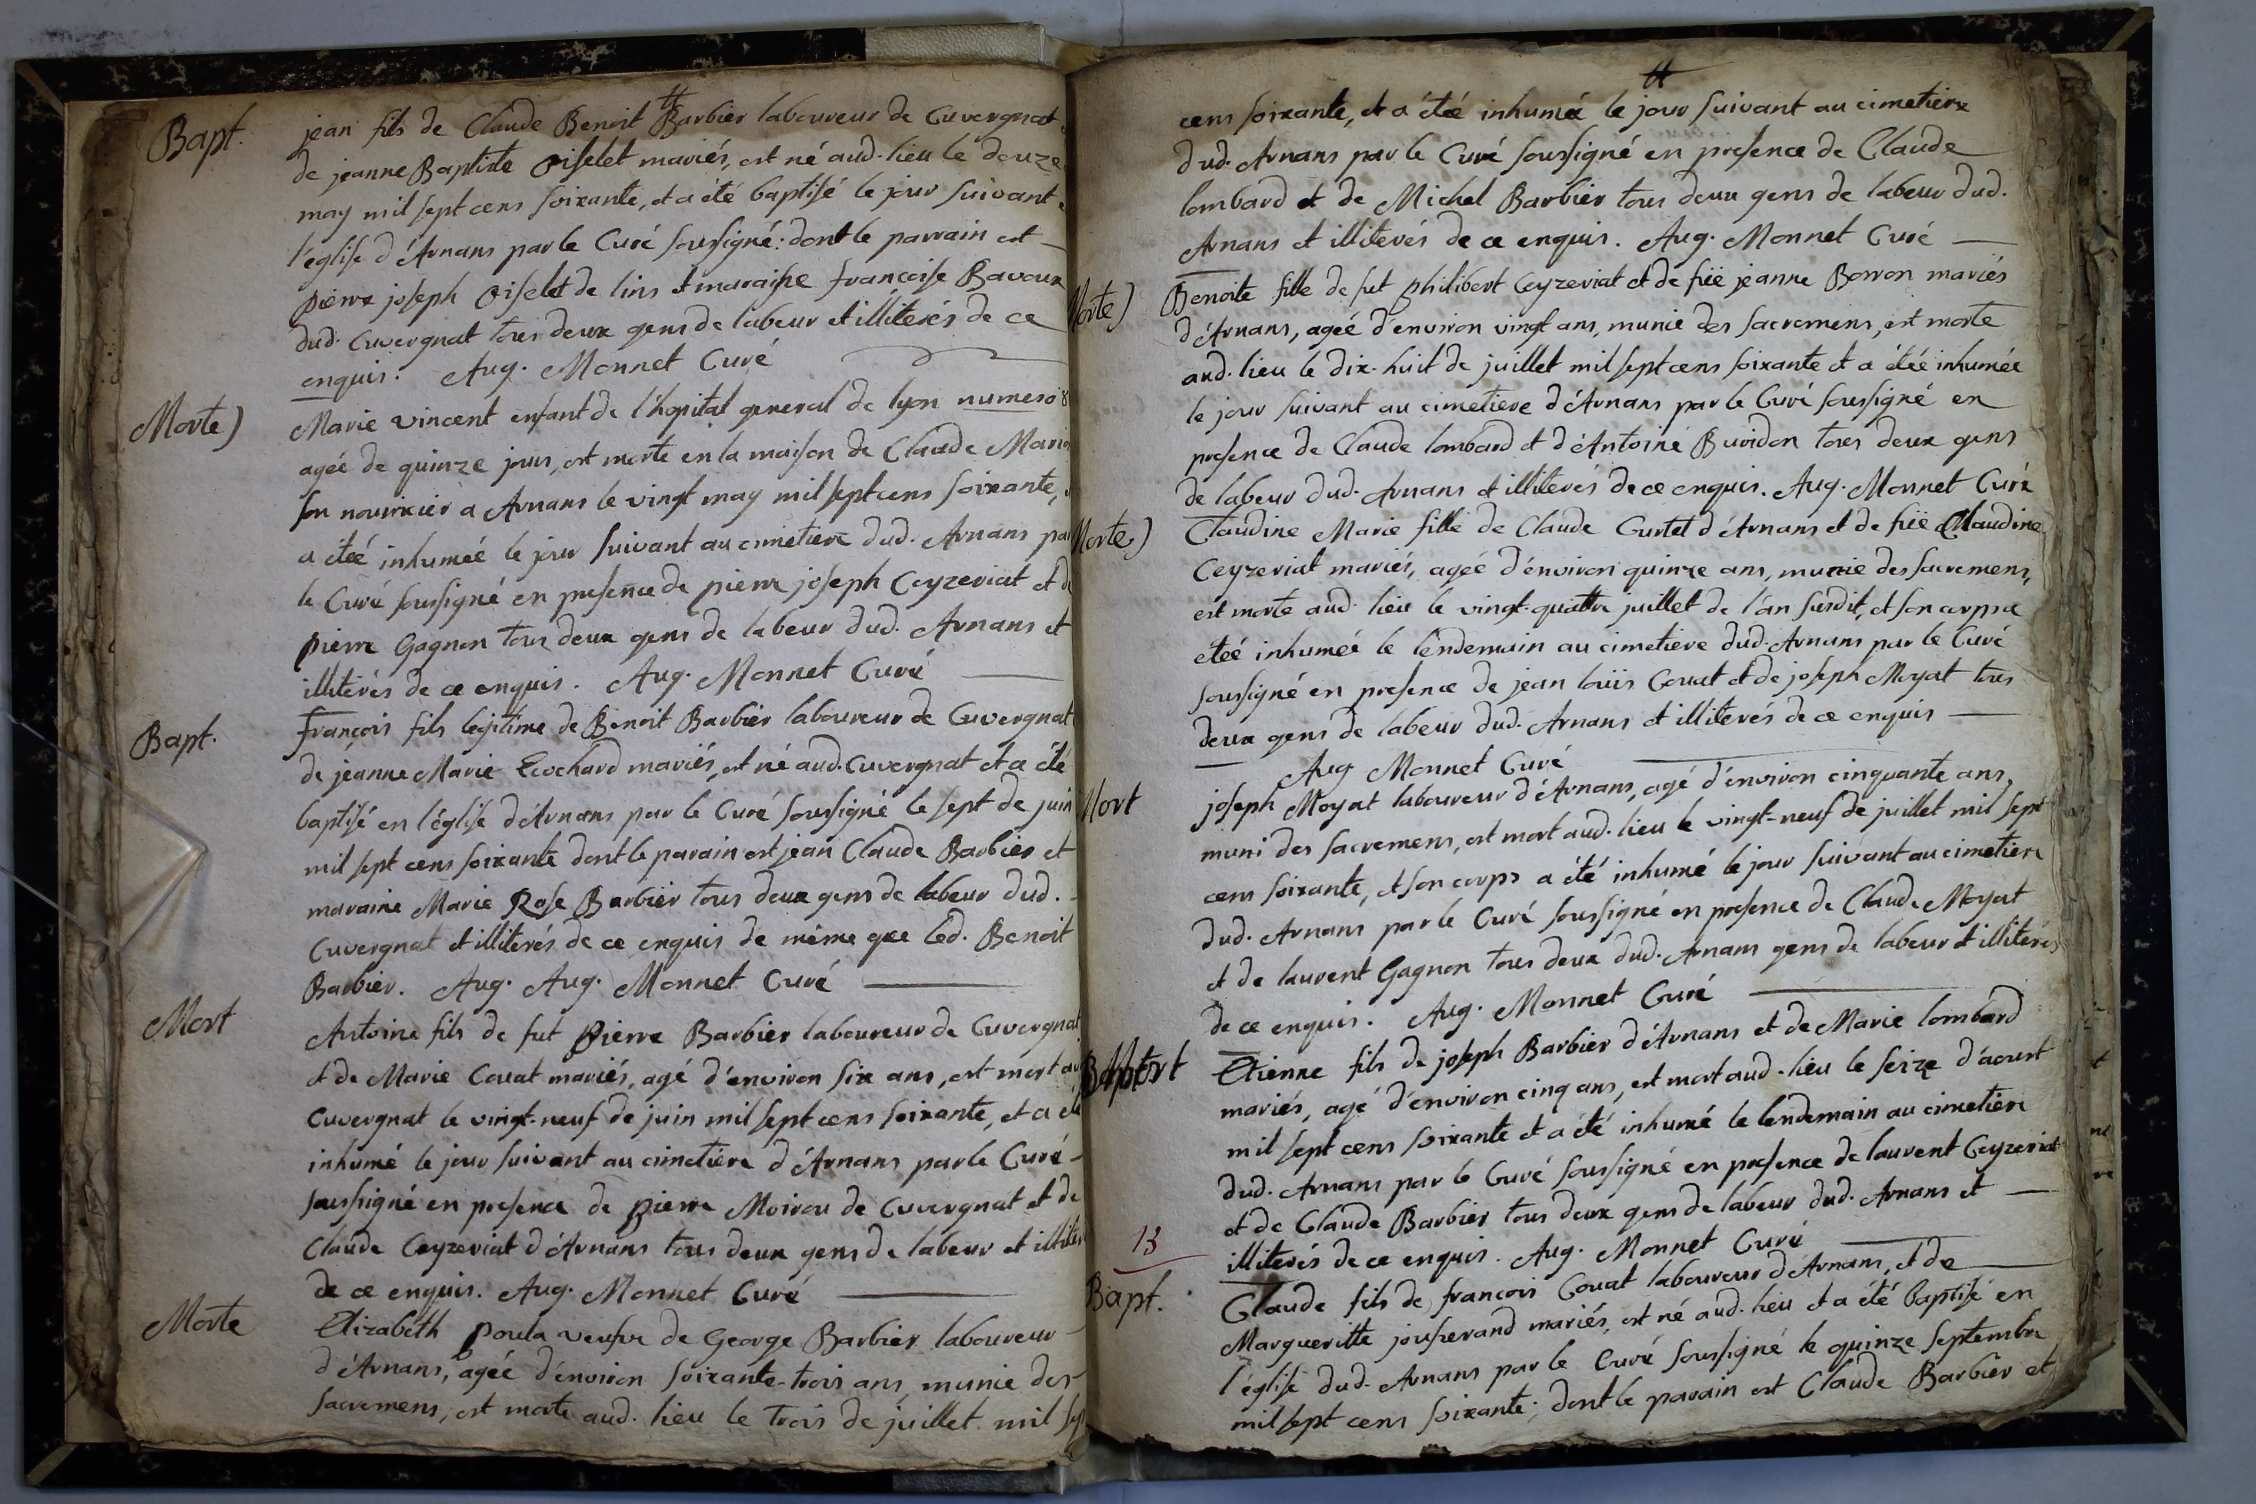 Bapt.
jean fils de Claude Benoit Barbier laboureur de Cuvergnat
de jeanne Baptiste Oiselet mariés, est né aud. lieu le douze
may mil sept cens soixante, et a été baptisé le jour suivant
l'église d'Arnans par le Curé soussigné: dont le parrain est
pierre joseph Oiselet de lins et maraine françoise Bavoux
dud. Cuvergnat tous deux gens de labeur et illiterés de ce
enquis. Aug. Monnet Curé
Morte)
Marie vincent enfant de l'hopital general de lyon numero
ageé de quinze jours, est morte en la maison de Claude
son nourricier a Arnans le vingt may mil sept cens soixante,
a éteé inhumeé le jour suivant au cimetiere dud. Arnans par
le Curé soussigné en presence de pierre joseph Ceyzeriat et de
pierre Gagnon tous deux gens de labeur dud. Arnans et
illiterés de ce enquis. Aug. Monnet Curé
Bapt.
françois fils legitime de Benoit Barbier laboureur de Cuvergnat
de jeanne Marie Ecochard mariés, est né aud. Cuvergnat et a été
baptisé en l'église d'Arnans par le Curé soussigné le sept de juin
mil sept cens soixante dont le parain est jean Claude Barbier et
maraine Marie Rose Barbier tous deux gens de labeur dud.
Cuvergnat et illiterés de ce enquis de même que led. Benoit
Barbier. Aug. Aug. Monnet Curé
Mort
Antoine fils de fut Pierre Barbier laboureur de Cuvergnat
et de Marie Couat mariés, agé d'environ six ans, est mort
Cuvergnat le vingt-neuf de juin mil sept cens soixante, et a été
inhumé le jour suivant au cimetiere d'Arnans par le Curé
soussigné en presence de pierre Moirou de Cuvergnat et de
Claude Ceyzeriat d'Arnans tous deux gens de labeur et
de ce enquis. Aug. Monnet Curé
Morte
Elizabeth Poula veufve de George Barbier laboureur
d'Arnans, ageé d'environ soixante-trois ans, munie des
sacremens, est morte aud. lieu le trois de juillet mil sept
cens soixante, et a éteé inhumeé le jour suivant au cimetiere
dud. Arnans par le Curé soussigné en presence de Claude
lombard et de Michel Barbier tous deux gens de labeur dud.
Arnans et illiterés de ce enquis. Aug. Monnet Curé
Morte)
Benoite fille de fut philibert Ceyzeriat et de füe jeanne Borron mariés
d'Arnans, ageé d'environ vingt ans, munie des sacremens, est morte
aud. lieu le dix-huit de juillet mil sept cens soixante et a éteé inhumeé
le jour suivant au cimetiere d'Arnans par le Curé soussigné en
presence de Claude lombard et d'Antoine Buidon tous deux gens
de labeur dud. Arnans et illiterés de ce enquis. Aug. Monnet Curé
Morte)
Claudine Marie fille de Claude Curtet d'Arnans et de füe Claudine
Ceyzeriat mariés, ageé d'environ quinze ans, munie des sacremens,
est morte aud. lieu le vingt-quatre juillet de l'an susdit, et son corps a
eteé inhumeé le lendemain au cimetiere dud. Arnans par le Curé
soussigné en presence de jean loüis Couat et de joseph Moyat tous
deux gens de labeur dud. Arnans et illiterés de ce enquis
Aug Monnet Curé
Mort
joseph Moyat laboureur d'Arnans, agé d'environ cinquante ans,
muni des sacremens, est mort aud. lieu le vingt-neuf de juillet mil sept
cens soixante, et son corps a été inhumé le jour suivant au cimetiere
dud. Arnans par le Curé soussigné en presence de Claude Moyat
et de laurent Gagnon tous deux dud. Arnans gens de labeur et illiterés
de ce enquis. Aug. Monnet Curé
Etienne fils de joseph Barbier d'Arnans et de Marie lombard
mariés, agé d'environ cinq ans, est mort aud. lieu le seize d'aoust
mil sept cens soixante et a été inhumé le lendemain au cimetiere
dud. Arnans par le Curé soussigné en presence de laurent Ceyzeriat
et de Claude Barbier tous deux gens de labeur dud. Arnans et
illiterés de ce enquis. Aug. Monnet Curé
13
Bapt.
Claude fils de françois Couat laboureur d'Arnans, et de
Margueritte jousserand mariés, est né aud. lieu et a été baptisé en
l'église dud. Arnans par le Curé soussigné le quinze septembre
mil sept cens soixante; dont le parain est Claude Barbier et